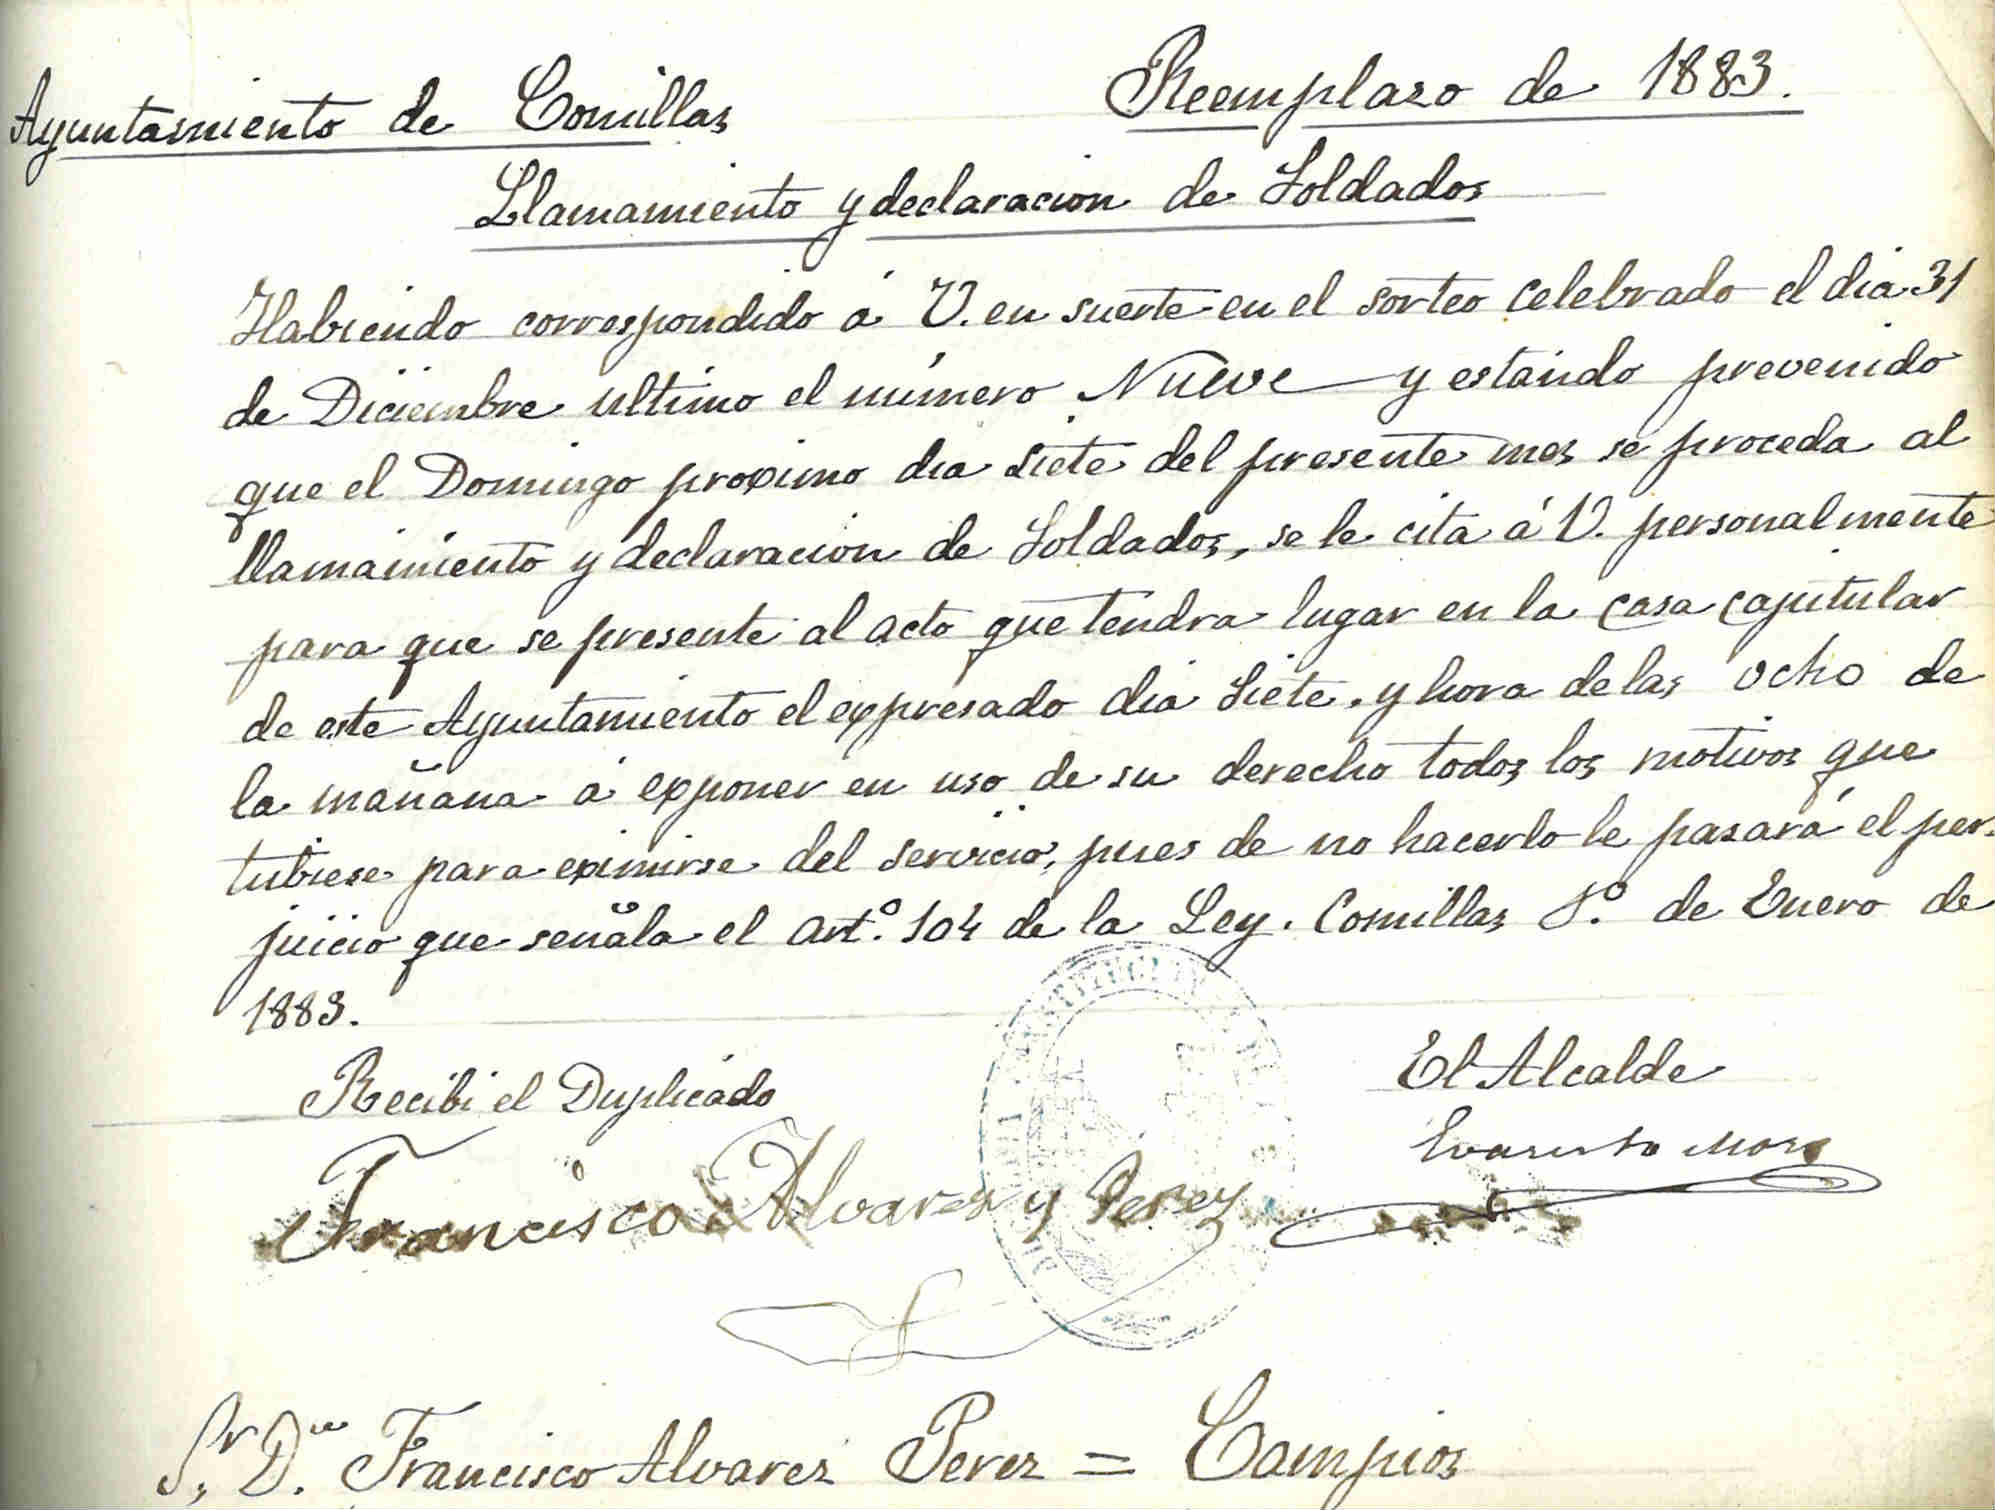 Ayuntamiento de Comillas
Reemplazo de 1883.
Llamamiento y declaracion de Soldados
Habiendo correspondido á V. en suerte en el sorteo celebrado el dia 31
de Diciembre ultimo el número Nueve y estando prevenido
que el Domingo proximo dia siete del presente mes se proceda al
llamamiento y declaracion de Soldados, se le cita á V. personalmente
para que se presente al acto que tendra lugar en la casa capitular
de este Ayuntamiento el expresado dia siete. y hora de las ocho de
la mañana á exponer en uso de su derecho todos los motivos que
tubiese para eximirse del servicio, pues de no hacerlo le pasará el per-
juicio que señala el Art.º 104 de la Ley. Comillas 1.º de Enero de
1883.
Recibi el Duplicado
El Alcalde
Evaristo Mora
Francisco Alvarez y Perez
Sr. Dn. Francisco Alvarez Perez = Campios